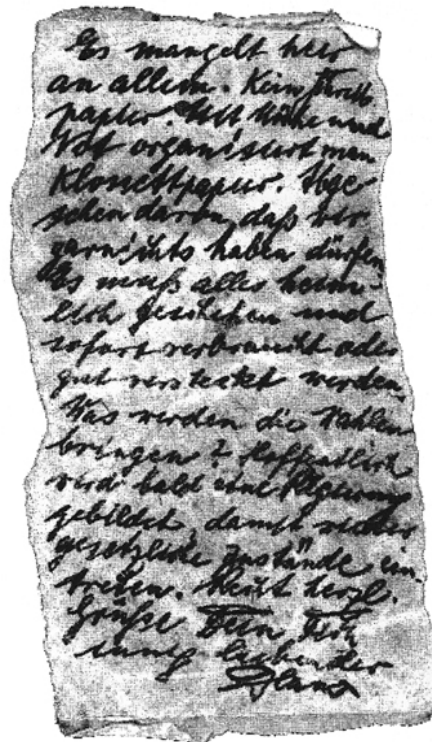 Es mangelt hier
an allem. Kein Schreib-
papier. Mit Mühe und
Not organisiert man
Klosettpapier. Abge-
sehen davon, daß wir
garnichts haben dürfen.
Es muß alles heim-
lich geschehen und
sofort verbraucht oder
gut versteckt werden.
Was werden die Wahlen
bringen? Hoffentlich
wird bald eine Regierung
gebildet, damit wieder
gesetzliche Zustände ein-
treten. Seid herzl.
Grüße Dein Dich
innig liebender
Hans